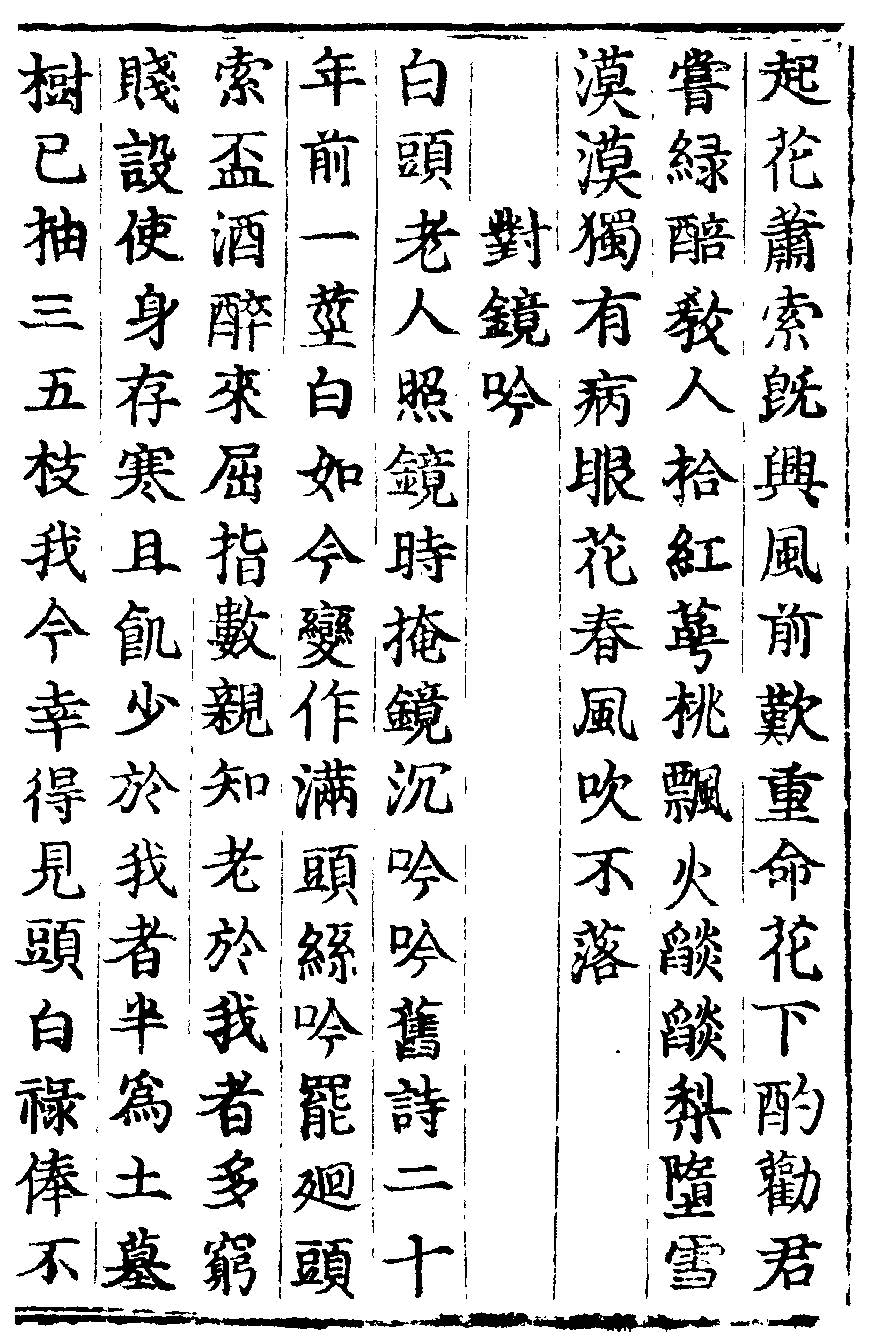 起花蕭索旣興風前歎重命花下酌勸君
嘗綠醅教人拾紅萼桃飄火燄燄梨墮雪
漠漠獨有病眼花春風吹不落
對鏡吟
白頭老人照鏡時掩鏡沉吟吟舊詩二十
年前一莖白如今變作滿頭絲吟罷廻頭
索盃酒醉來屈指數親知老於我者多窮
賤設使身存寒且飢少於我者半爲土墓
樹已抽三五枝我今幸得見頭白祿俸不